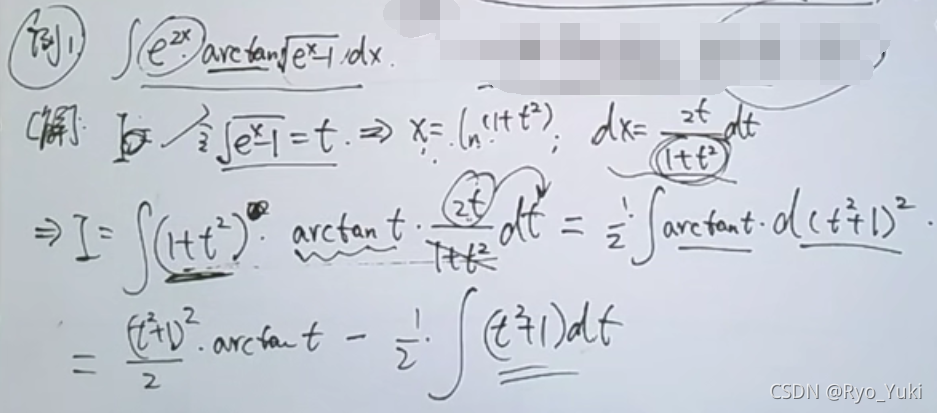 例1 ∫e^{2x}·arctan√(e^x-1) dx.
解: 令√(e^x-1)=t. ⇒ x=ln(1+t²); dx=\frac{2t}{1+t²}dt
⇒ I=∫(1+t²)· arctan t · \frac{2t}{1+t²}dt = \frac{1}{2}∫arctan t·d(t²+1)².
= \frac{(t²+1)²}{2}·arctan t - \frac{1}{2}·∫(t²+1)dt
CSDN @Ryo_Yuki